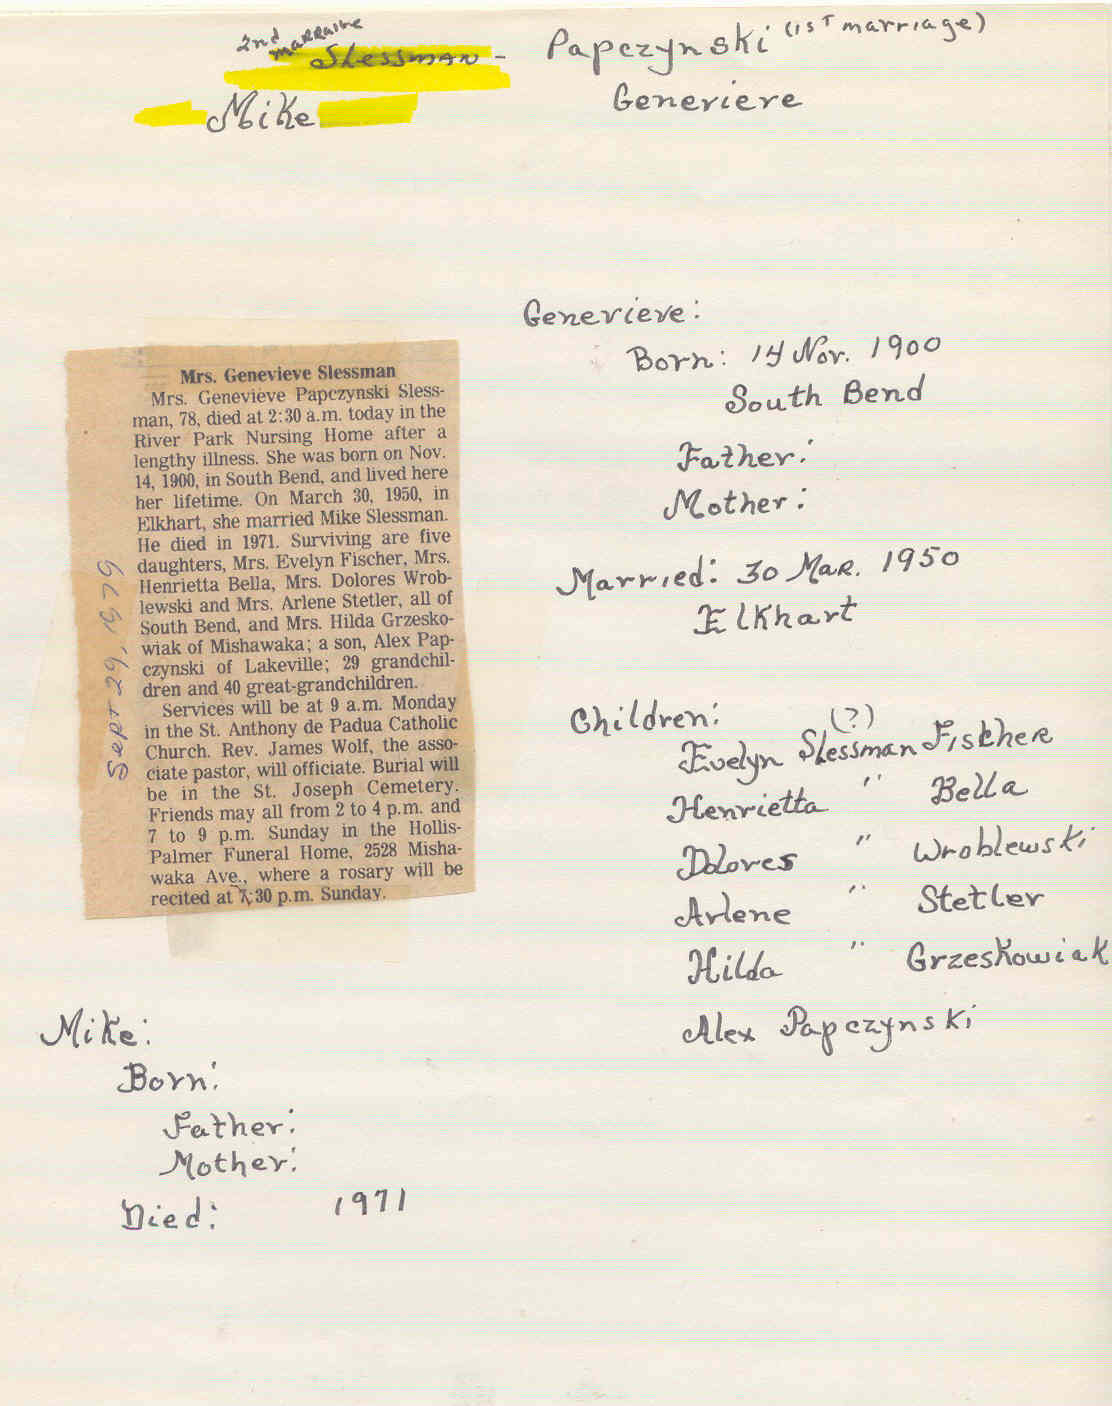 2nd
marraine
Slessman - Papczynski (1ST marriage)
Mike Generiere
Genevieve:
Born: 14 Nov. 1900
South Bend
Father:
Mother:
Married: 30 Mar. 1950
Elkhart
Children: (?)
Evelyn Slessman Fischer
Henrietta " Bella
Dolores " Wroblewski
Arlene " Stetler
Hilda " Grzeskowiak
Alex Papczynski
Mrs. Genevieve Slessman
Mrs. Genevieve Papczynski Sless-
man, 78, died at 2:30 a.m. today in the
River Park Nursing Home after a
lengthy illness. She was born on Nov.
14, 1900, in South Bend, and lived here
her lifetime. On March 30, 1950, in
Elkhart, she married Mike Slessman.
He died in 1971. Surviving are five
daughters, Mrs. Evelyn Fischer, Mrs.
Henrietta Bella, Mrs. Dolores Wrob-
lewski and Mrs. Arlene Stetler, all of
South Bend, and Mrs. Hilda Grzesko-
wiak of Mishawaka; a son, Alex Pap-
czynski of Lakeville; 29 grandchil-
dren and 40 great-grandchildren.
Services will be at 9 a.m. Monday
in the St. Anthony de Padua Catholic
Church. Rev. James Wolf, the asso-
ciate pastor, will officiate. Burial will
be in the St. Joseph Cemetery.
Friends may all from 2 to 4 p.m. and
7 to 9 p.m. Sunday in the Hollis-
Palmer Funeral Home, 2528 Misha-
waka Ave., where a rosary will be
recited at 7:30 p.m. Sunday.
Sept 29, 1979
Mike:
Born:
Father:
Mother:
Died: 1971